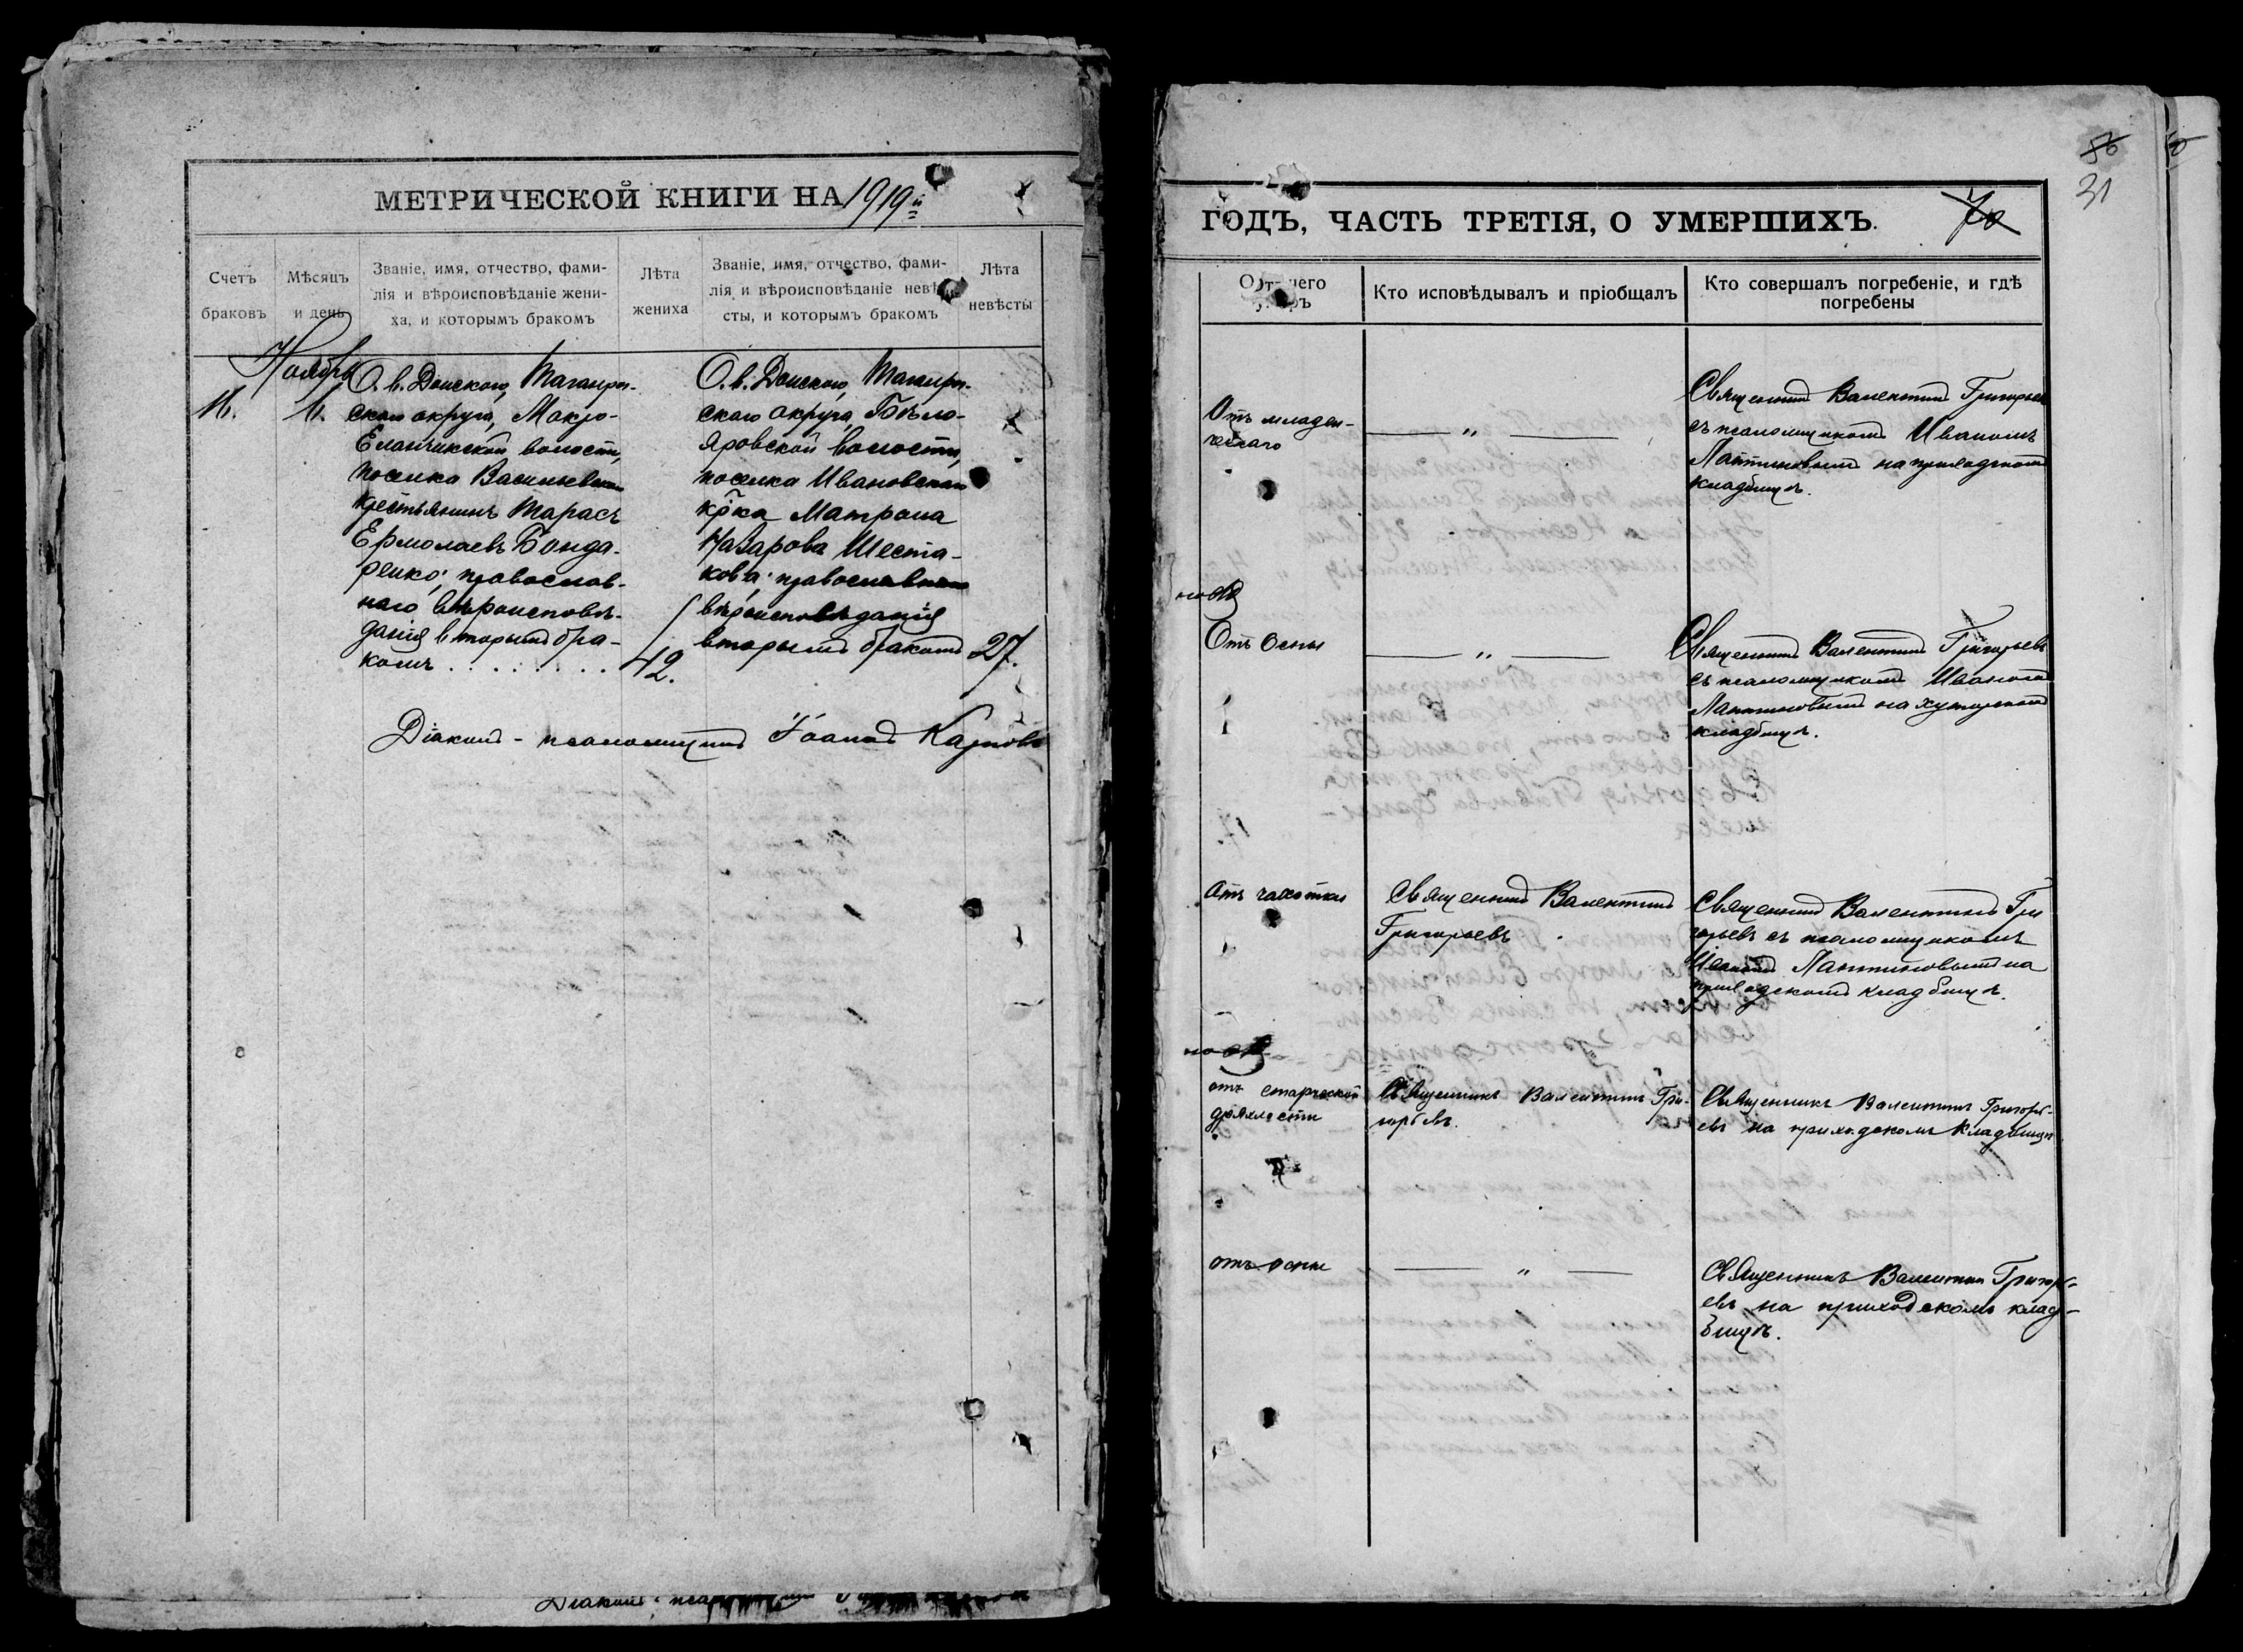 МЕТРИЧЕСКОЙ КНИГИ НА 1919й
Счетъ браковъ
Мѣсяцъ и день
Званіе, имя, отчество, фами-
лія и вѣроисповѣданіе жени-
ха, и которымъ бракомъ
Лѣта жениха
Званіе, имя, отчество, фами-
лія и вѣроисповѣданіе невѣ-
сты, и которымъ бракомъ
Лѣта невѣсты
Ноябрь
16.
О. в. Донского, Таганрог-
скаго округа, Мокро-
Еланчикской волости,
поселка Васильевки
крестьянинъ Тарасъ
Ермолаевъ Бонда-
ренко; православ-
наго вѣроисповѣ-
данія вторымъ бра-
комъ . . . . . . . . 42.
О. в. Донского, Таганрог-
скаго округа, Бѣло-
яровской волости,
поселка Ивановскаго
кр̃ка Матрона
Назарова Шеста-
кова; православнаго
вѣроисповѣданія
вторымъ бракомъ 27.
Діаконъ - псаломщикъ Іоаннъ Карповъ
Діаконъ - 
56
31
ГОДЪ, ЧАСТЬ ТРЕТІЯ, О УМЕРШИХЪ. 70
Отъ чего
умеръ
Кто исповѣдывалъ и пріобщалъ
Кто совершалъ погребеніе, и гдѣ
погребены
Отъ младен-
ческаго
— „ —
Священникъ Валентинъ Григорьевъ
съ псаломщикомъ Иваномъ
Лаптиновымъ на приходскомъ
кладбищѣ.
Отъ оспы
— „ —
Священникъ Валентинъ Григорьевъ
съ псаломщикомъ Иваномъ
Лаптиновымъ на хуторскомъ
кладбищѣ.
Отъ чахотки
Священникъ Валентинъ
Григорьевъ
Священникъ Валентинъ Гри
горьевъ съ псаломщикомъ
Иваномъ Лаптиновымъ на
приходскомъ кладбищѣ.
отъ старческой
дряхлости
Священникъ Валентинъ Гри-
горьевъ.
Священникъ Валентинъ Григорь-
евъ на приходскомъ кладбищѣ
отъ оспы
— „ —
Священникъ Валентинъ Григорь-
евъ на приходскомъ клад-
бищѣ.